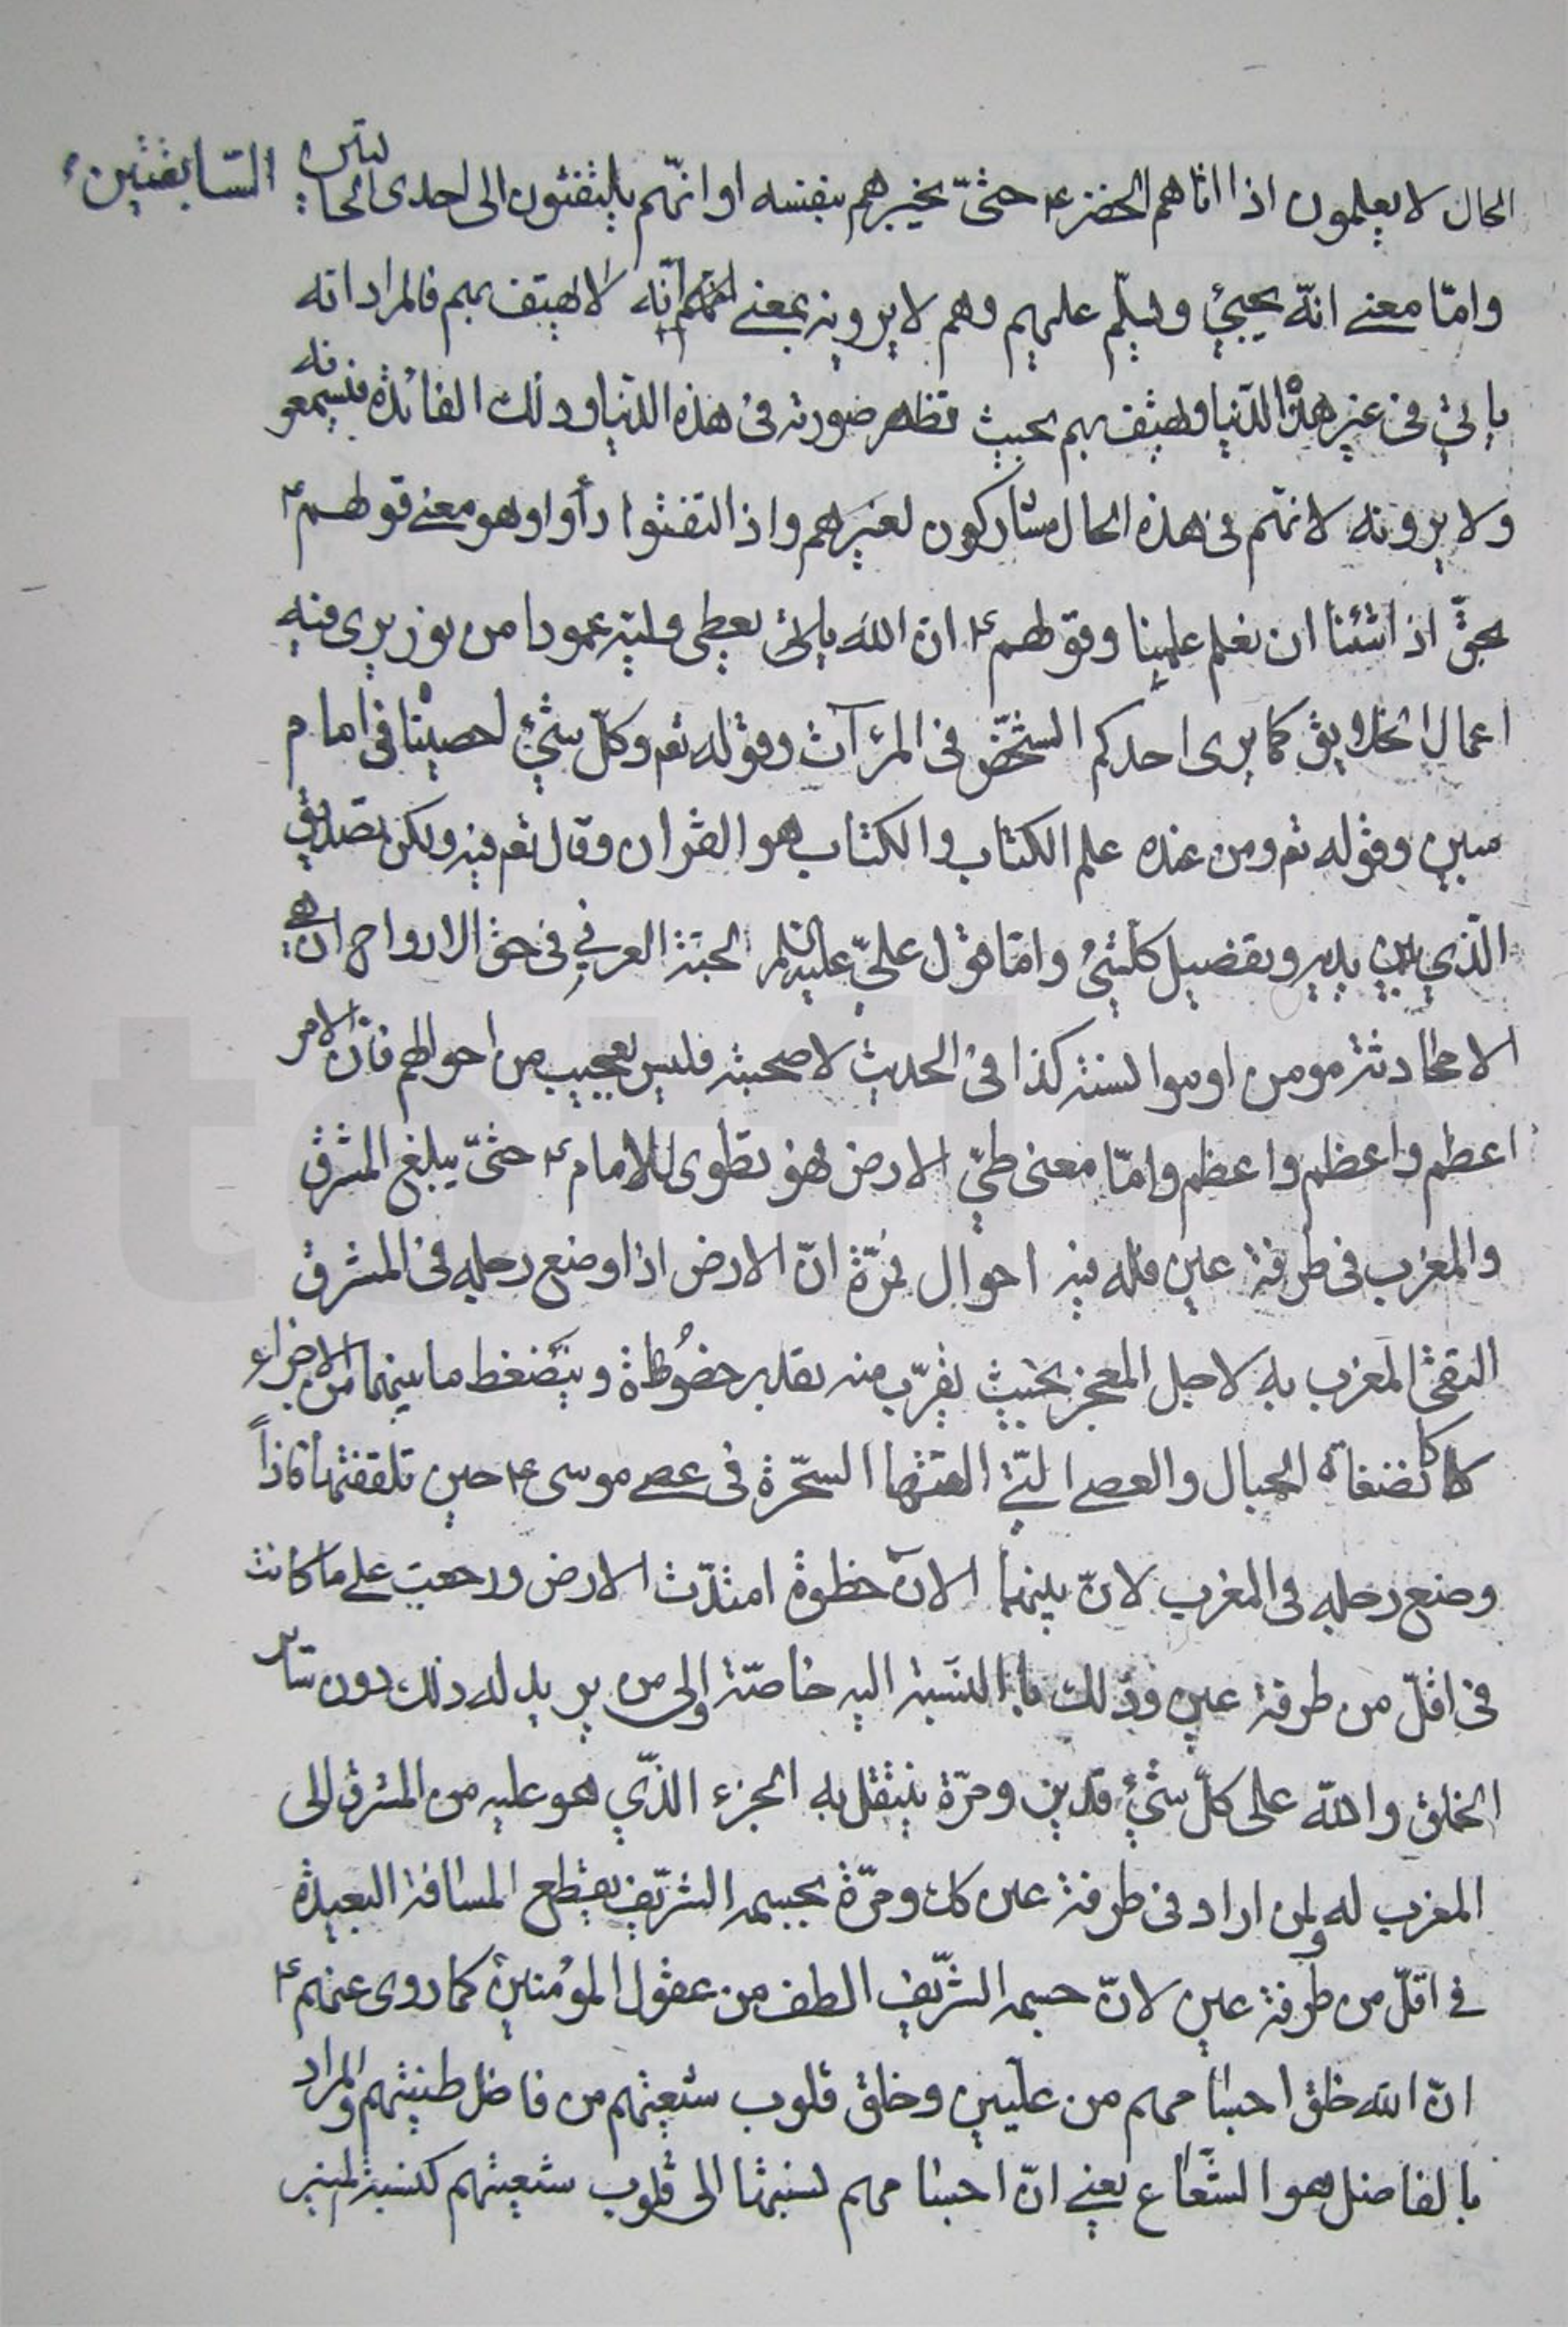 الحال لا يعلمون اذا اتاهم الخضرء حتىّ يخبرهم بنفسه او انهّم يلتفتون الى احدى الحالتين السّابقتين
وامّا معنے انهّ يجيئ ويسلّم عليهم وهم لا يرونه بمعنے انّه لا يهتف بهم فالمراد انه
ياتي فى غير هذه الدّنيا ويهتف بهم بحيث تظهر صورته فى هذه الدّنيا وذلك الفائدة فيسمعونه
ولا يرونه لانهّم فى هذه الحال مشاركون لغيرهم واذا التفتوا رأوا وهو معنے قولهم ء
بحقّ اذا شئنا ان نعلم علمنا وقولهم ء انّ اللّه يعطى وليّه عمودا من نور يرى فيه
اعمال الخلايق كما يرى احدكم الشّخص فى المرآت وقوله تعم وكلّ شئ احصيناه فى امام
مبين وقوله تعم ومن عنده علم الكتاب والكتاب هو القران وقال تعم فيه ولكن تصديق
الّذي بين يديه وتفضيل كلشئ وامّا قول علىّ عليه السّلم لحبّة العرني فى حق الارواح ان هي
الا محادثة مومن او موانسته كذا فى الحديث لا صحبته فليس بعجيب من احوالهم فانّ الامر
اعظم واعظم واعظم وامّا معنى طىّ الارض فهو تطوى للامام ء حتىّ يبلغ المشرق
والمغرب فى طرفة عين فله فيه احوال فمرّة انّ الارض اذا وضع رجله فى المشرق
التقى المغرب به لاجل المعجز بحيث يقرّب منه بقدر خطوة وينضغط ما بينهما من الاجزاء
كانضغاط الحبال والعصے الّتي القتها السّحرة فى عصے موسى ء حين تلقفتها فاذاً
وضع رجله فى المغرب لانّ بينهما الآن خطوة امتدّت الارض ورجعت على ما كانت
فى اقلّ من طرفة عين وذلك بالنّسبة اليه خاصّة والى من يريد له ذلك دون سائر
الخلق واللّه على كلّ شئ قدير ومرّة ينتقل به الجزء الّذي هو عليه من المشرق الى
المغرب له ولمن اراد فى طرفة عين كك ومرّة بجسمه الشّريف يقطع المسافة البعيدة
فى اقلّ من طرفة عين لانّ جسمه الشّريف الطف من عقول المؤمنين كما روى عنهم ء
انّ اللّه خلق اجسامهم من عليين وخلق قلوب شيعتهم من فاضل طينتهم والمراد
بالفاضل هو الشّعاع يعنے انّ اجسامهم نسبتها الى قلوب شيعتهم كنسبة المنير